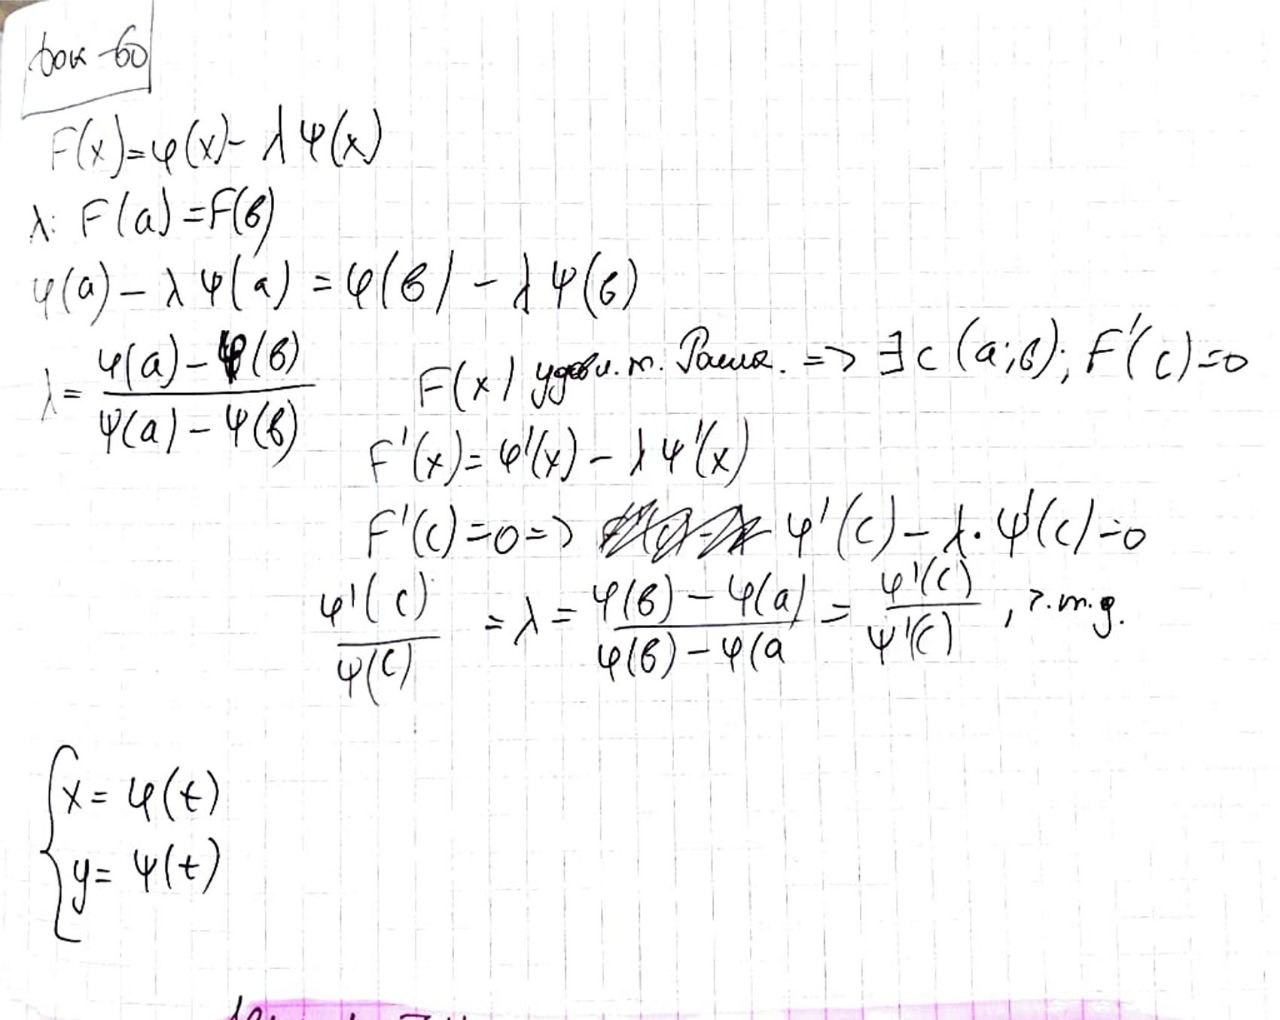 док-во
F(x)=φ(x)-λψ(x)
λ: F(a)=F(в)
φ(a)-λψ(a)=φ(в)-λψ(в)
λ= (φ(a)-φ(в))/(ψ(a)-ψ(в)) F(x) удовл. т. Ролля. => ∃c (a;в); F'(c)=0
F'(x)=φ'(x)-λψ'(x)
F'(c)=0=> φ'(c)-λ·ψ'(c)=0
φ'(c)/ψ(c) =λ= (φ(в)-φ(a))/(φ(в)-φ(a) = φ'(c)/ψ'(c), ч.т.д.
{x=φ(t)
y=ψ(t)